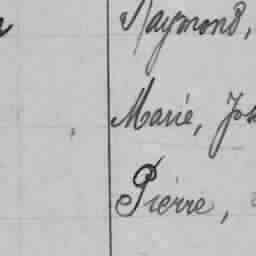 Raymond,
Marie, Jos
Pierre,